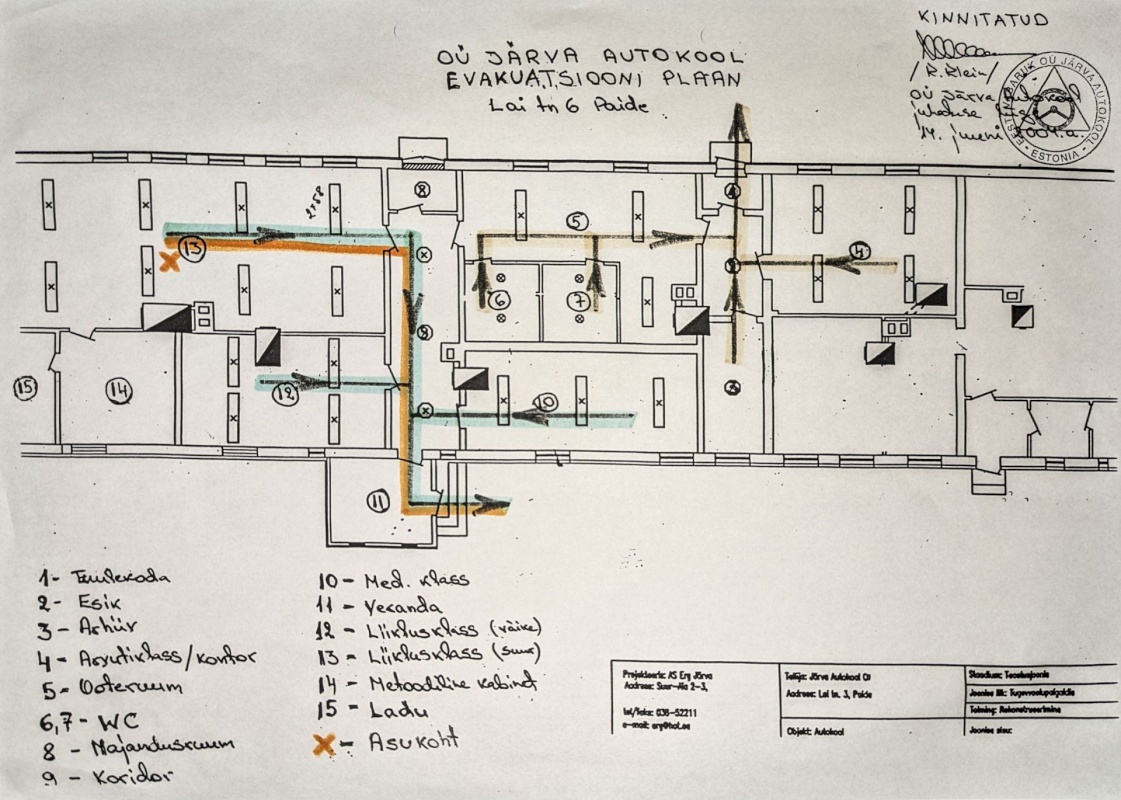 KINNITATUD
/R. Klein/
OÜ Järva Autokool
juhatuse
14. juuni 2004.a.
EESTI ARUK OÜ JÄRVA AUTOKOOL
• ESTONIA •
OÜ JÄRVA AUTOKOOL
EVAKUATSIOONI PLAAN
Lai tn 6 Paide
2x58
8
1
13
5
4
2
6
7
9
15
14
12
10
3
11
1- Tuulekoda
2- Esik
3- Arhiiv
4- Arvutiklass/kontor
5- Ooteruum
6,7- WC
8 - Majandusruum
9 - Koridor
10 - Med. klass
11 - Veranda
12 - Liiklusklass (väike)
13 - Liiklusklass (suur)
14 - Metoodiline kabinet
15 - Ladu
X - Asukoht
Projekteeris: AS Erg Järva
Aadress: Suur-Aia 2-3,
tel/faks: 038-52211
e-mail: erg@hot.ee
Tellija: Järva Autokool OÜ
Aadress: Lai tn. 3, Paide
Objekt: Autokool
Staadium: Tööjoonis
Joonise liik: Tugevvoolupaigaldis
Toiming: Rekonstrueerimine
Joonise sisu: